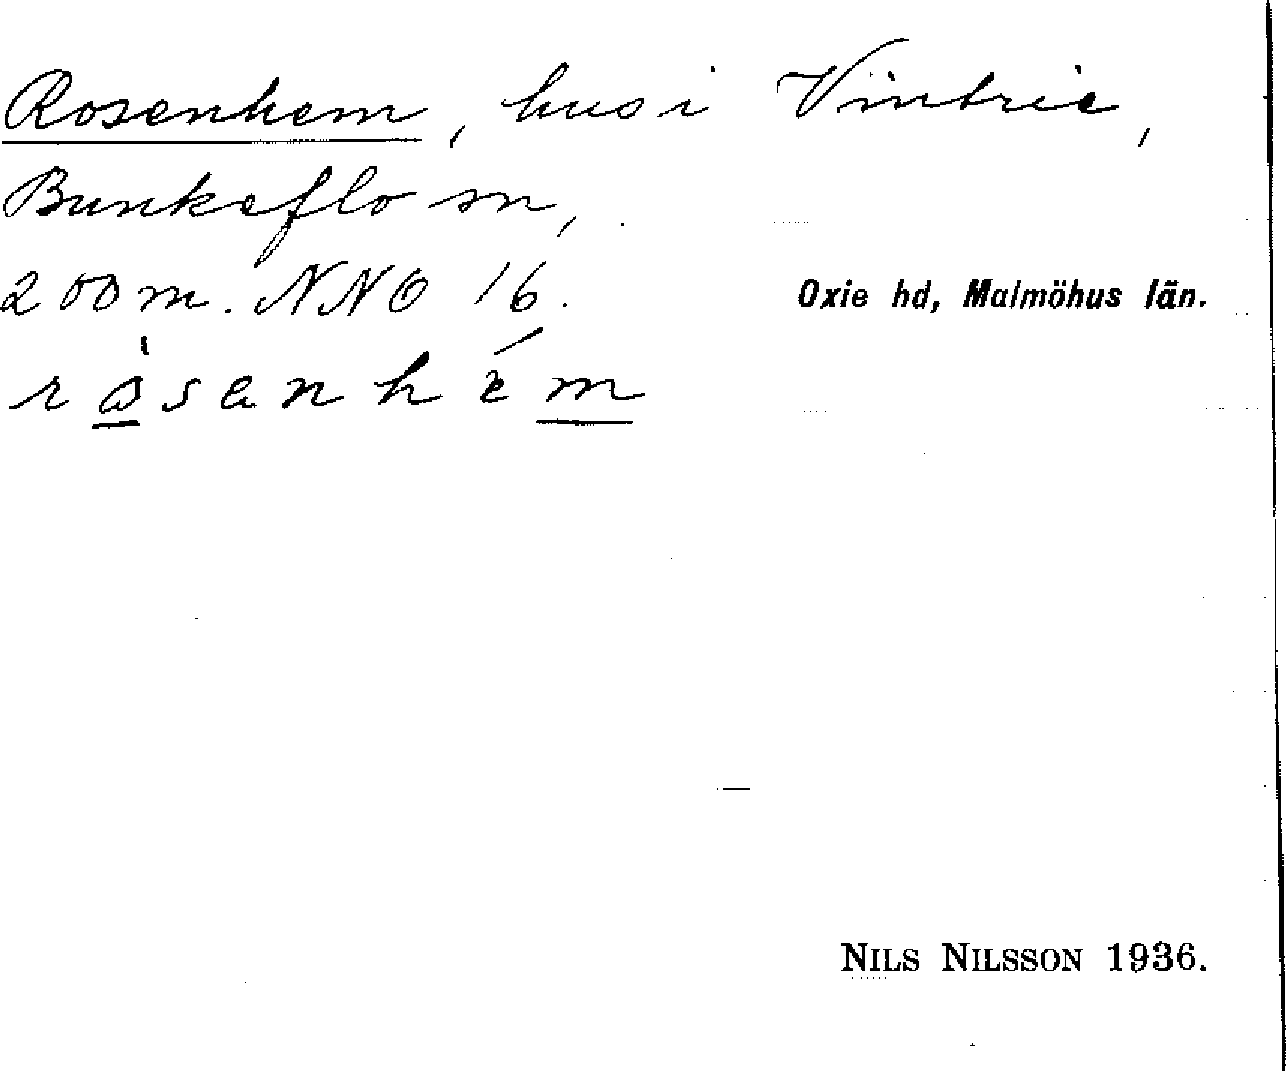 Rosenhem, hus i Vintrie,
Bunkeflo sn,
200 m. NNO 16.
Oxie hd, Malmöhus län.
NILS NILSSON 1936.